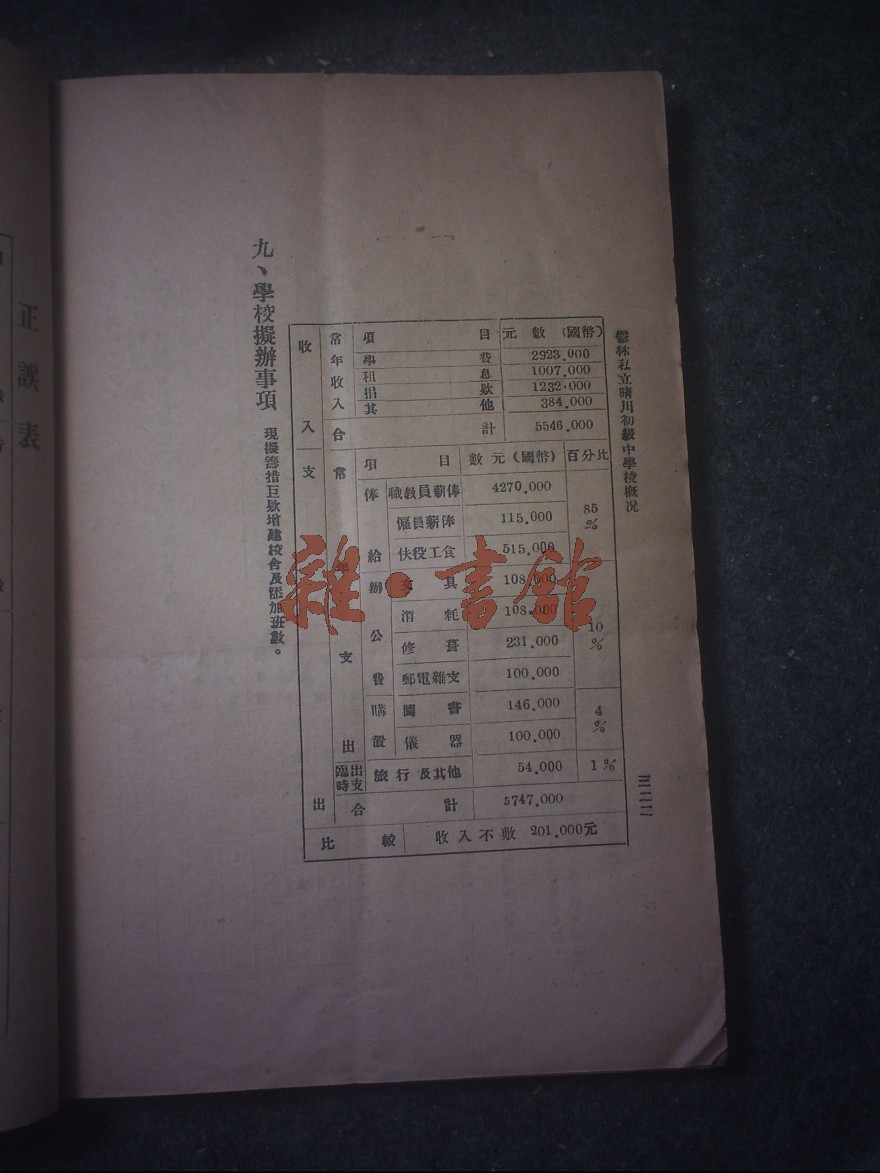 鬱林私立晴川初級中學校概况
收入
常年收入
項目 元數(國幣)
學費 2923.000
租息 1007.000
捐欵 1232.000
其他 384.000
合計 5546.000
支出
常年支出
項目 數元(國幣) 百分比
俸給 職教員薪俸 4270.000 85%
僱員薪俸 115.000
伕役工食 515.000
辦公費 文具 108.000 10%
消耗 108.000
修葺 231.000
郵電雜支 100.000
購置 圖書 146.000 4%
儀器 100.000
臨時支出 旅行及其他 54.000 1%
合計 5747.000
比較 收入不敷 201.000元
九、學校擬辦事項
現擬籌措巨欵增建校舍及添加班數。
雜·書館
正誤表